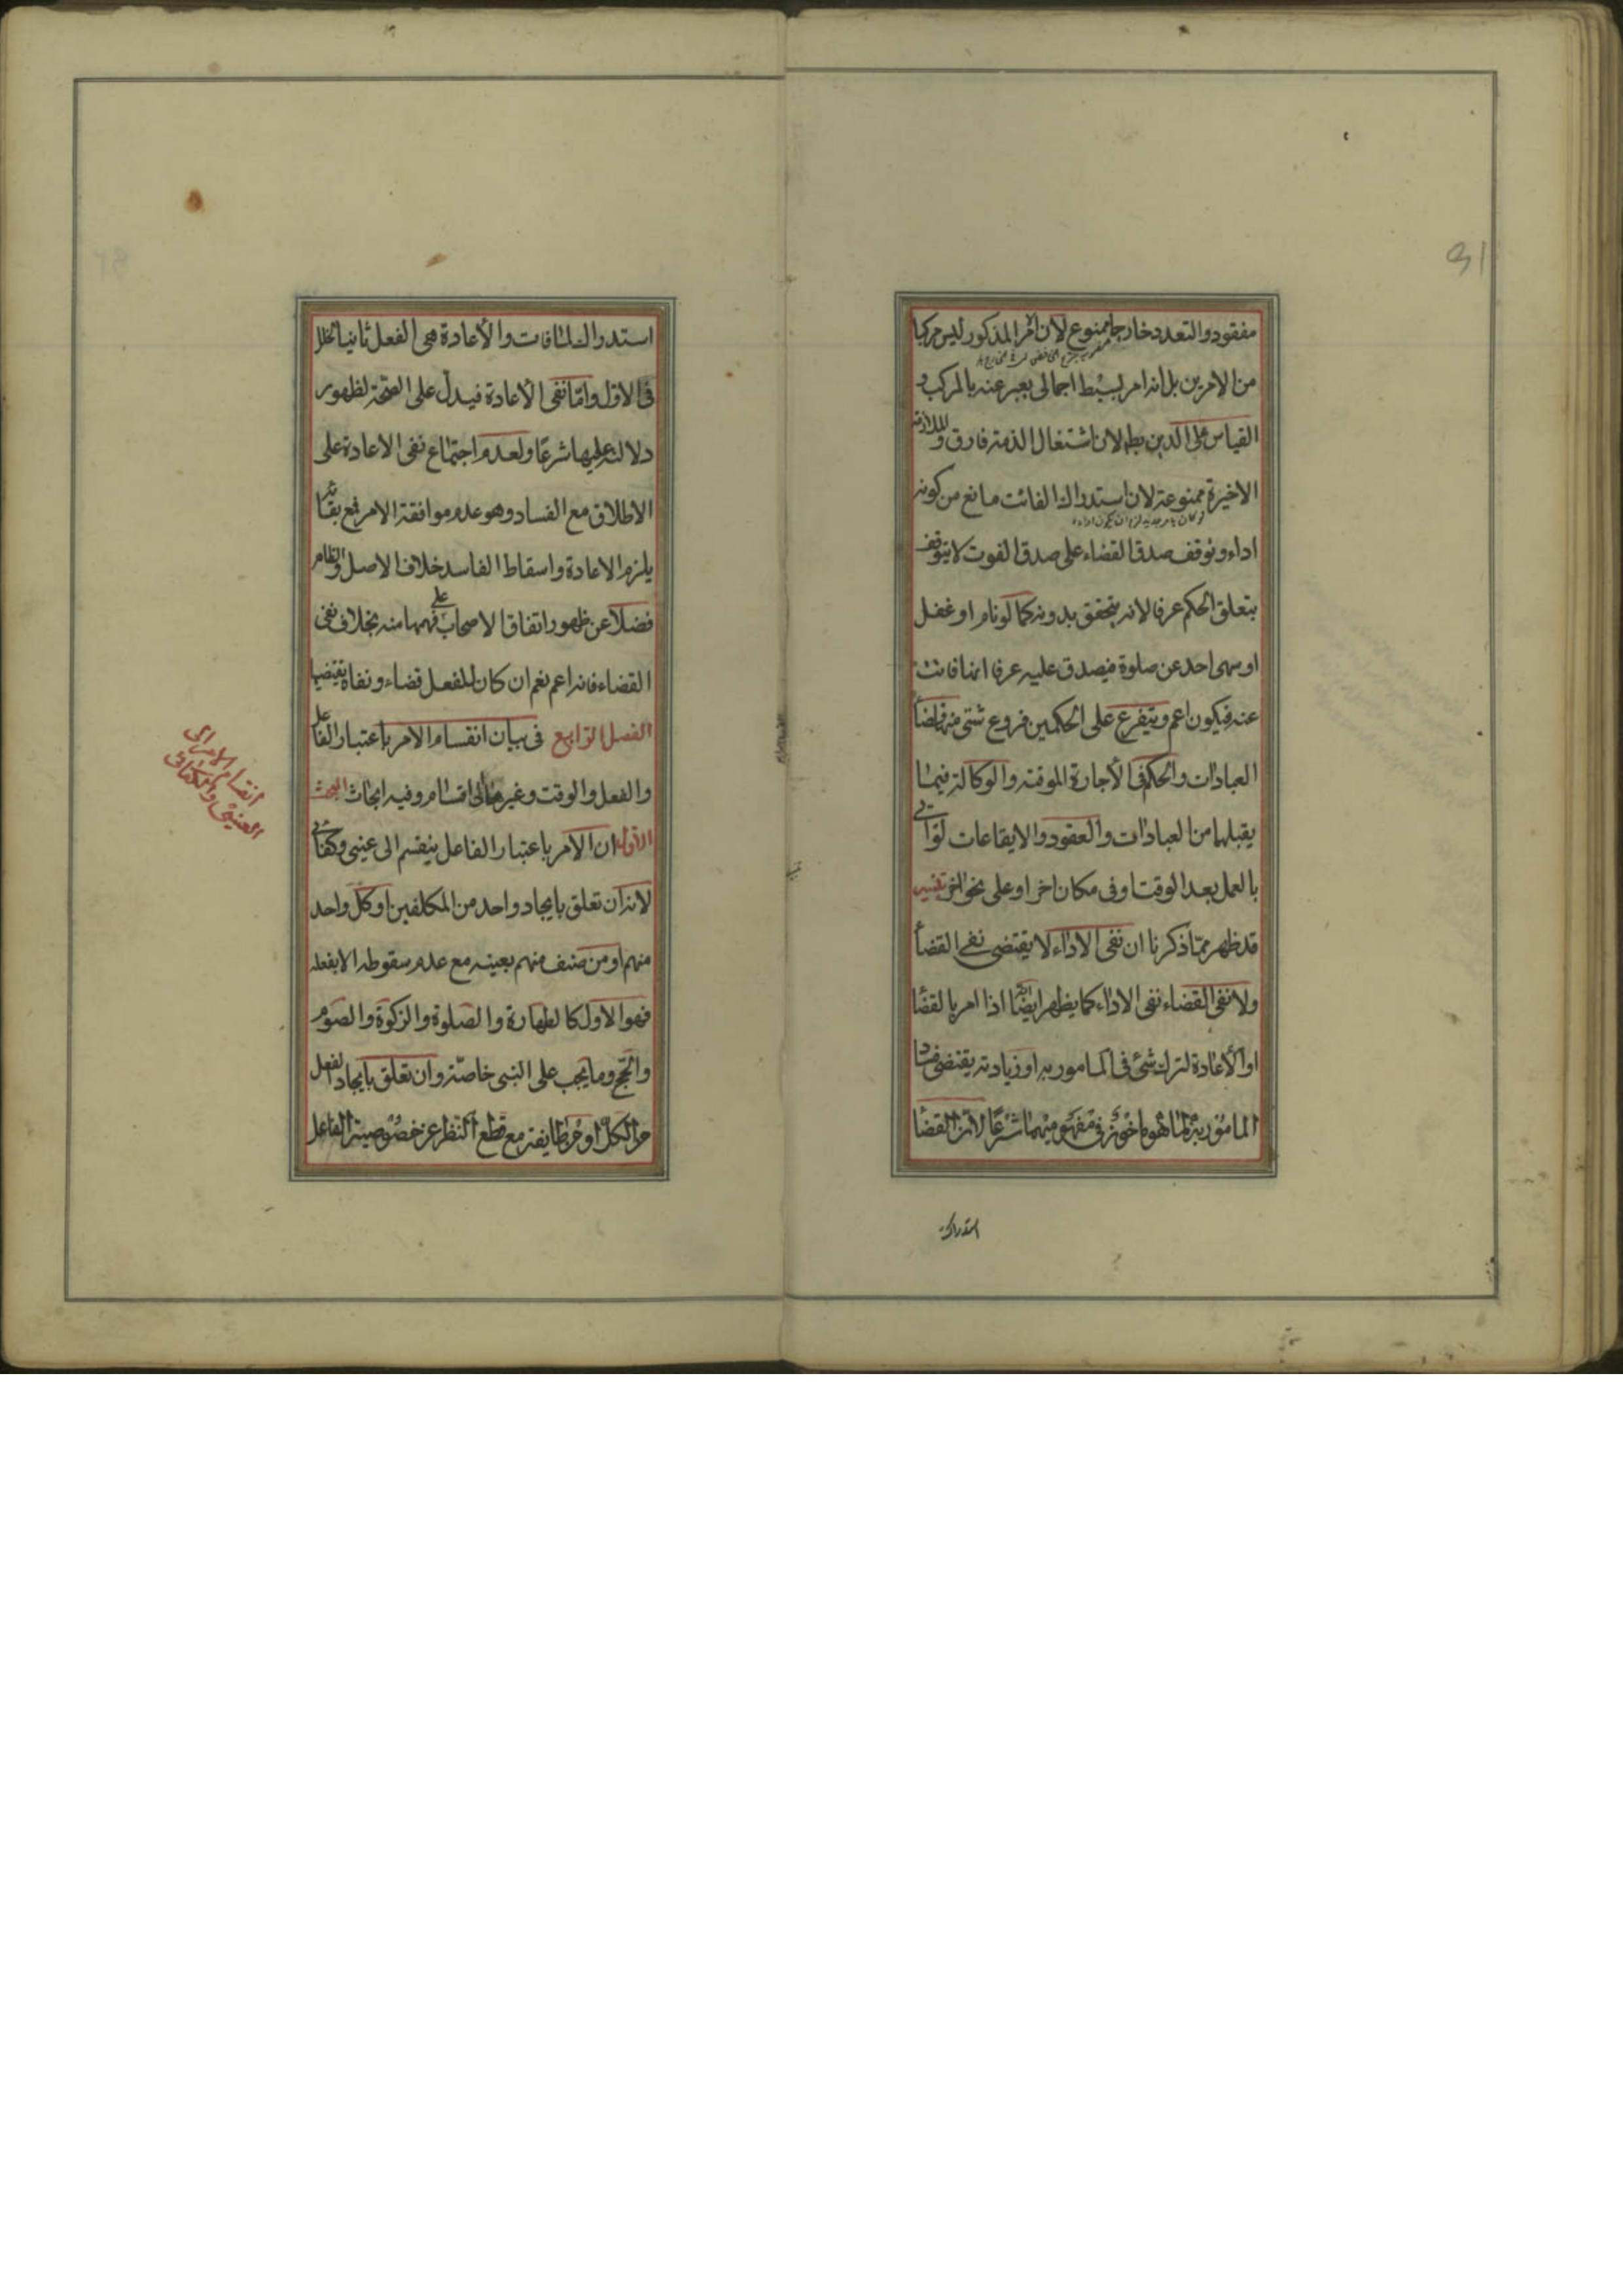 31
مفقود والتعدد خارجا ممنوع لان الامر المذكور ليس مركبا
من الامرين بل انه امر بسيط اجمالى يعبر عنه بالمركب و
القياس على الدين بط لان اشتغال الذمة فارق والملازمة
الاخيرة ممنوعة لان استدراك الفائت مانع من كونه
اداء وتوقف صدق القضاء على صدق الفوت لا يتوقف
بتعلق الحكم عرفا لانه يتحقق بدونه كما لو نام او غفل
او سهى احد عن صلوة فيصدق عليه عرفا انها فاتت
عنه فيكون اعم ويتفرع على الحكمين فروع شتى منها قضاء
العبادات والحكم فى الأجارة الموقتة والوكالة فيما
يقبلها من العبادات والعقود والايقاعات لو اتى
بالعمل بعد الوقت او فى مكان اخر او على نحو اخر تنبيه
قد ظهر مما ذكرنا ان نفى الاداء لا يقتضى نفى القضاء
ولا نفى القضاء نفى الاداء كما يظهر ايضا انه اذا امر بالقضاء
او الأعادة لترك شئ فى المامور به او زيادته يقتضى فساد
المامور به لما هو ماخوذ فى مفهوميهما شرعا لان القضاء
استدراك
استدراك لما فات والأعادة هى الفعل ثانيا لخلل
فى الاول واما نفى الأعادة فيدل على الصحة لظهور
دلالته عليها شرعا ولعدم اجتماع نفى الاعادة على
الاطلاق مع الفساد وهو عدم موافقة الامر فمع بقائه
يلزم الاعادة واسقاط الفاسد خلاف الاصل والظاهر
فضلا عن ظهور اتفاق الاصحاب على فهمها منه بخلاف نفى
القضاء فانه اعم نعم ان كان للفعل قضاء ونفاه يقتضيها
الفصل الرابع فى بيان انقسام الامر باعتبار الفاعل
والفعل والوقت وغيرها الى اقسام وفيه ابحاث البحث
الأول ان الأمر باعتبار الفاعل ينقسم الى عينى وكفائى
لانه ان تعلق بايجاد واحد من المكلفين او كل واحد
منهم او من صنف منهم بعينه مع عدم سقوطه الا بفعله
فهو الاول كالطهارة والصلوة والزكوة والصوم
والحج وما يجب على النبى خاصة وان تعلق بايجاد الفعل
من الكل او من طايفة مع قطع النظر عن خصوصية الفاعل
انقسام الامر الى
العينى والكفائى